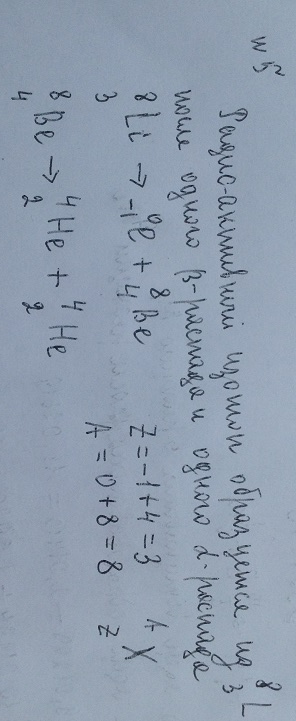 №5
Радио-активный изотоп образуется из ⁸₃L
после одного β-распада и одного α-распада
⁸₃Li → ⁰₋₁e + ⁸₄Be Z = -1+4 = 3 ᴬ_Z X
⁸₄Be → ⁴₂He + ⁴₂He A = 0+8 = 8